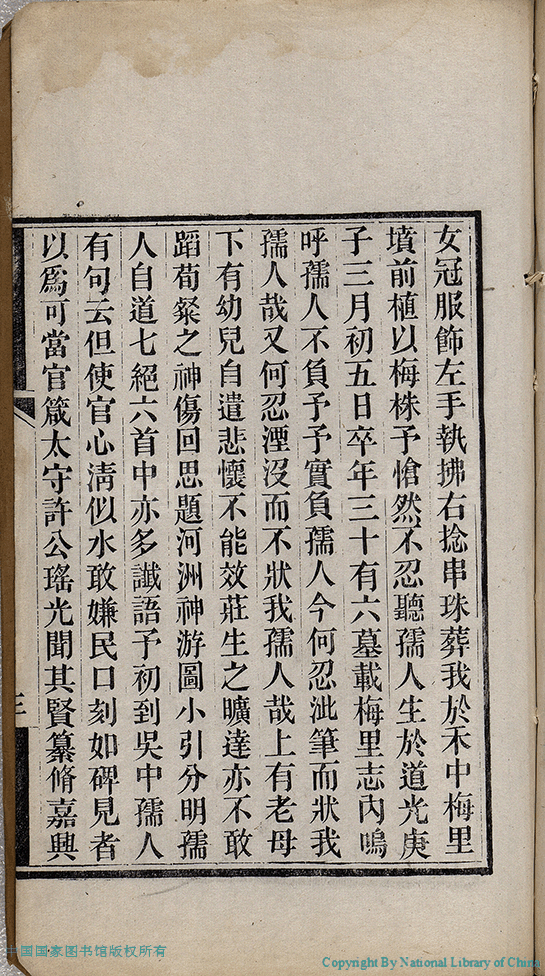 女冠服飾左手執拂右捻串珠葬我於禾中梅里
墳前植以梅株予愴然不忍聽孺人生於道光庚
子三月初五日卒年三十有六墓載梅里志內嗚
呼孺人不負予予實負孺人今何忍泚筆而狀我
孺人哉又何忍湮沒而不狀我孺人哉上有老母
下有幼兒自遣悲懷不能效莊生之曠達亦不敢
蹈荀粲之神傷回思題河洲神游圖小引分明孺
人自道七絕六首中亦多讖語予初到吳中孺人
有句云但使官心淸似水敢嫌民口刻如碑見者
以爲可當官箴太守許公瑤光聞其賢纂脩嘉興
三
中国国家图书馆版权所有
Copyright By National Library of China